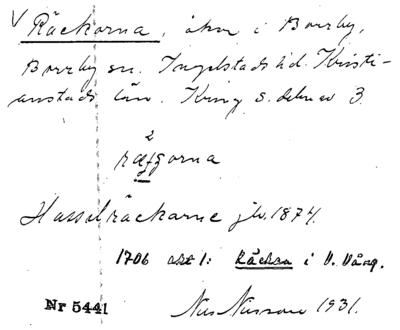 √ Räckorna, åker i Borrby,
Borrby sn. Ingelstads hd. Kristi-
anstads län. Kring s. delen av 3.
2
ræggorna
Hasselräckarne jb. 1874.
1706 akt 1: Räcka i V. Vång.
Nr 5441 Nils Nilsson 1931.